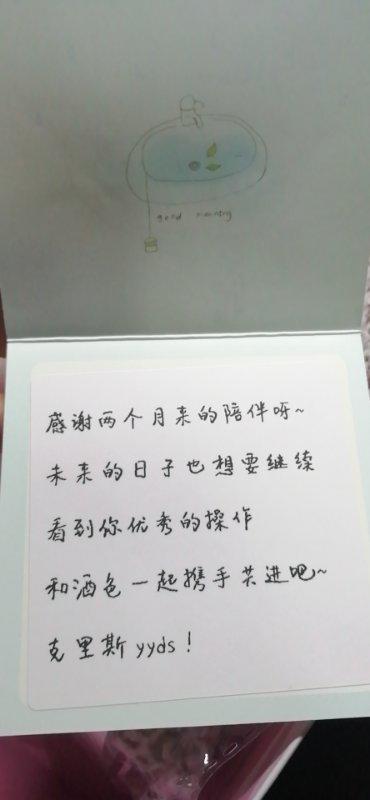 good morning
感谢两个月来的陪伴呀~
未来的日子也想要继续
看到你优秀的操作
和酒色一起携手共进吧~
克里斯 yyds!